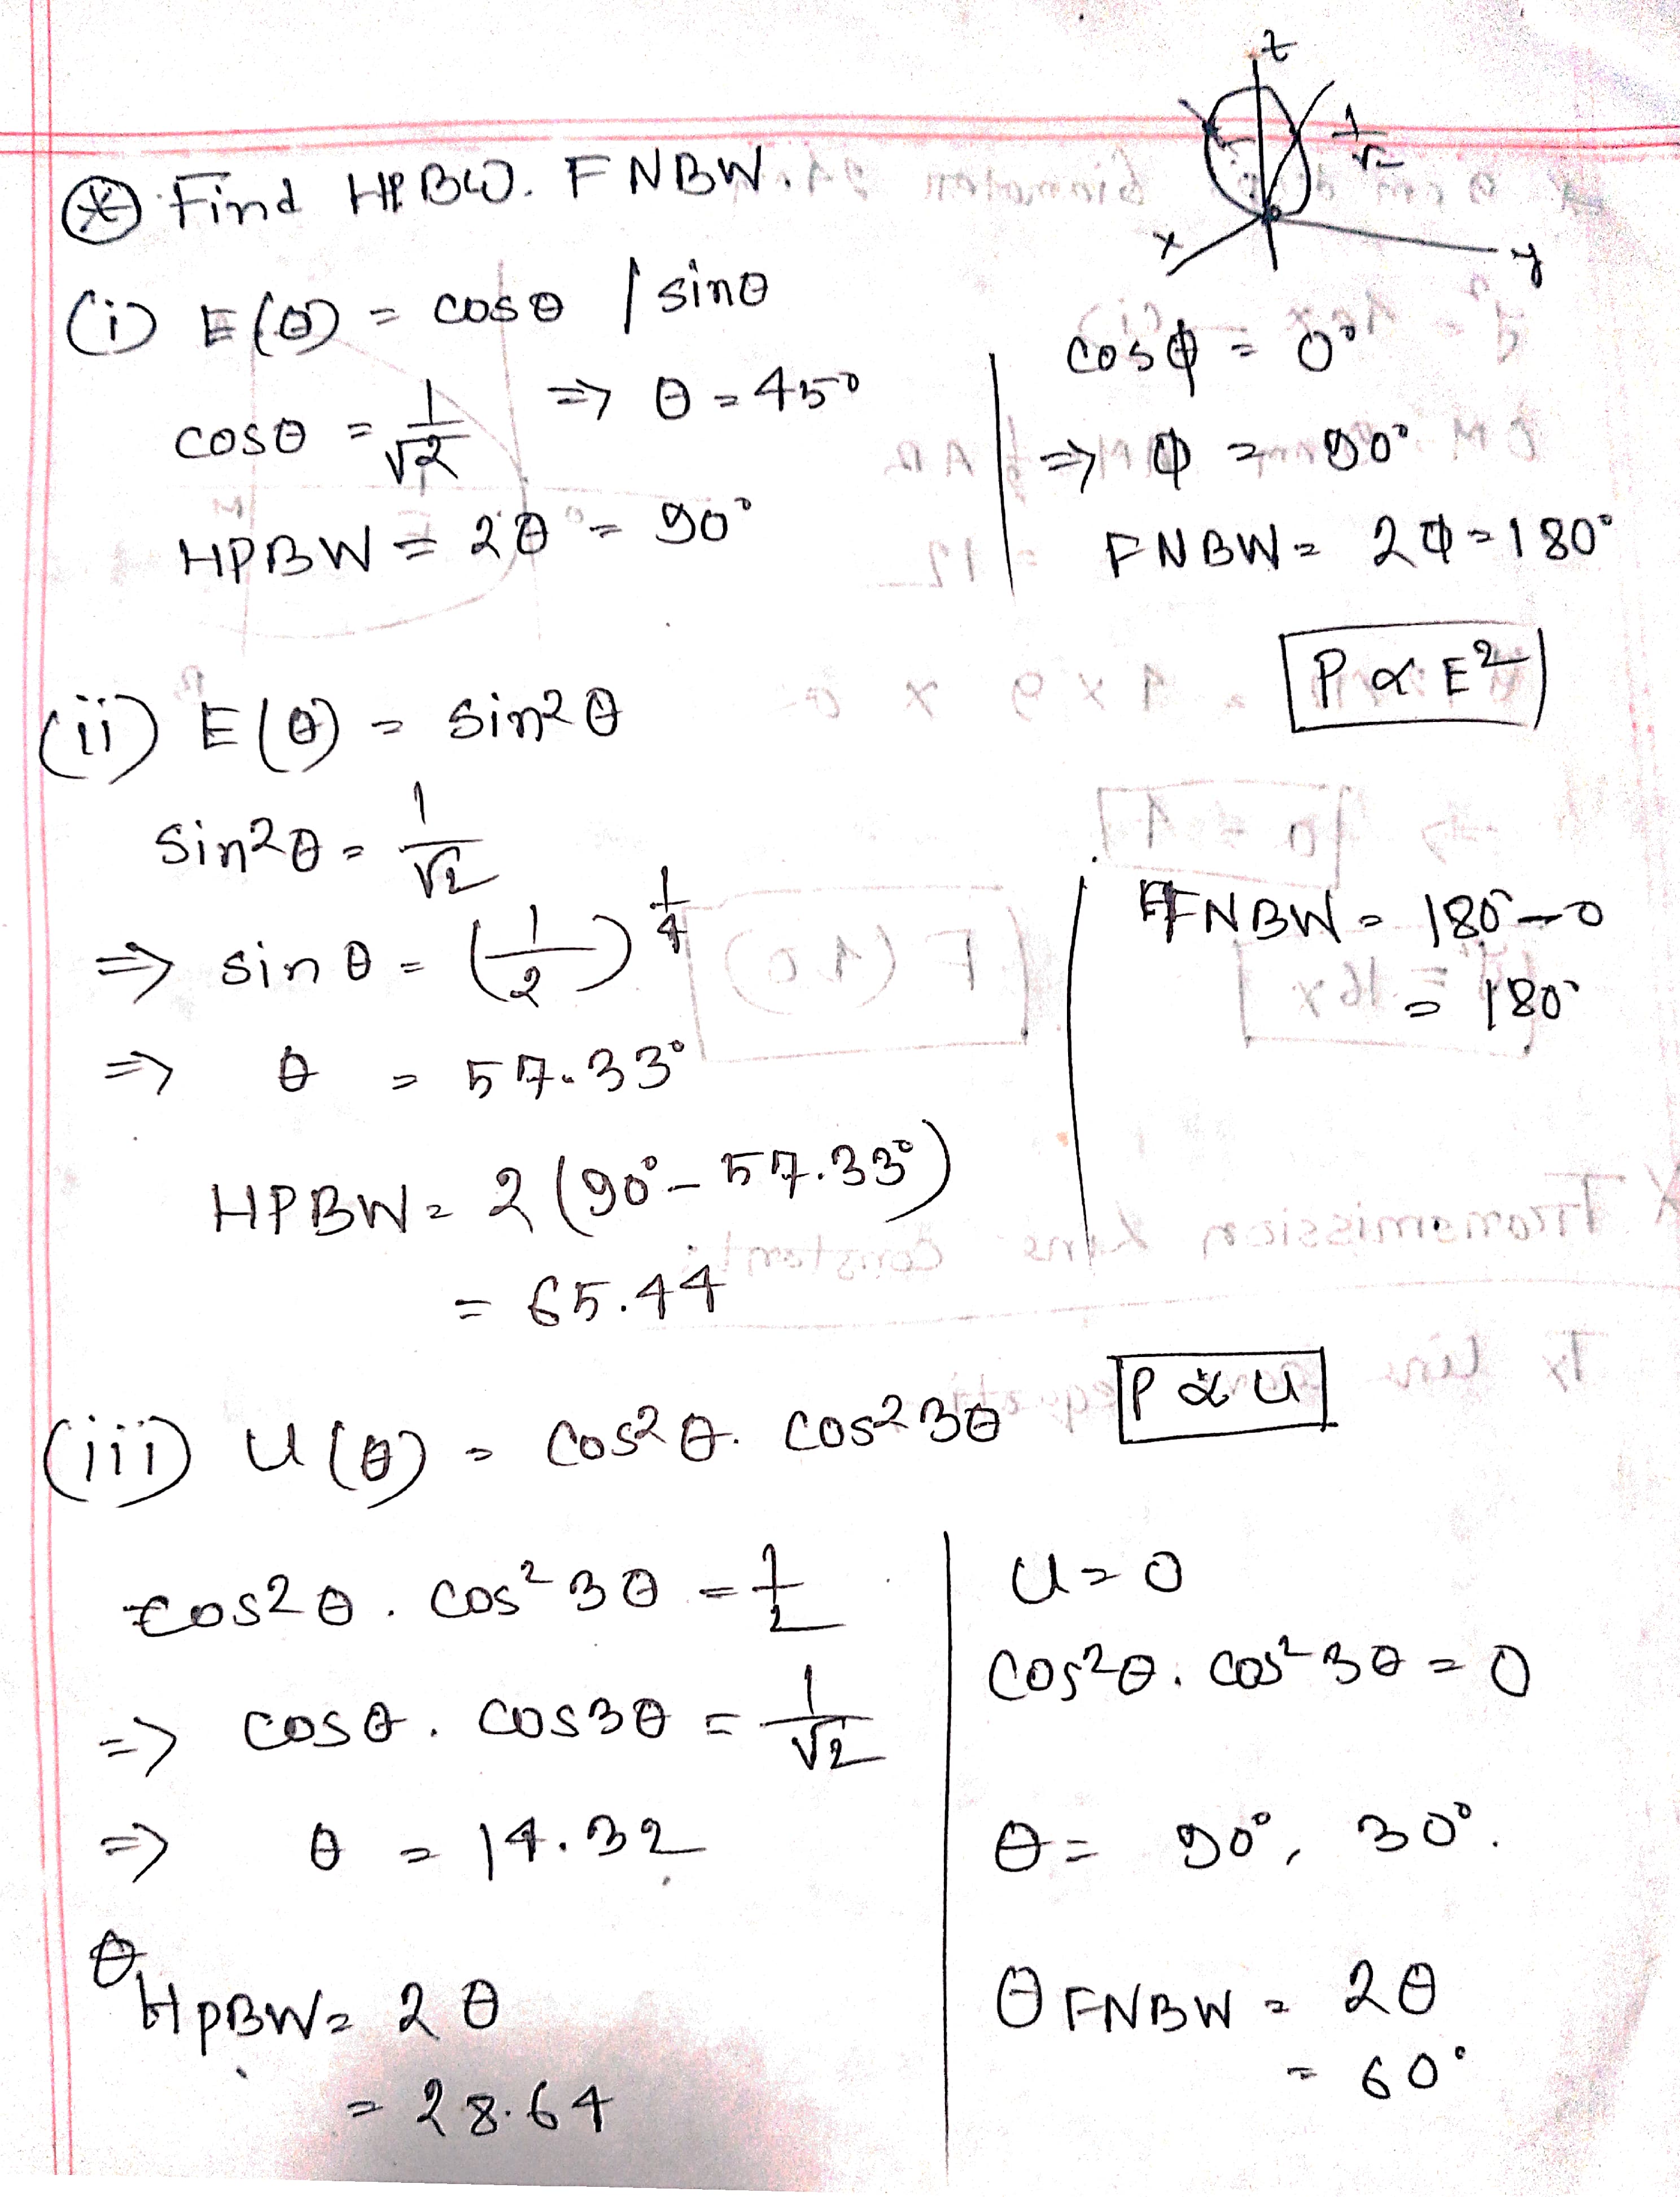 z
1/√2
x
y
⊛ Find HPBW. FNBW.
(i) E(θ) = cosθ / sinθ
cosθ = 1/√2 ⇒ θ = 45°
HPBW = 2θ = 90°
cosϕ = 0°
⇒ ϕ = 90°
FNBW = 2ϕ = 180°
P ∝ E²
(ii) E(θ) = sin²θ
sin²θ = 1/√2
⇒ sinθ = (1/2)^(1/4)
⇒ θ = 57.33°
HPBW = 2(90° - 57.33°)
= 65.44
FNBW = 180° - 0
= 180°
(iii) U(θ) = cos²θ. cos²3θ
P ∝ U
cos²θ. cos²3θ = 1/2
⇒ cosθ. cos3θ = 1/√2
⇒ θ = 14.32
θ HPBW = 2θ
= 28.64
U = 0
cos²θ. cos²3θ = 0
θ = 90°, 30°.
θ FNBW = 2θ
= 60°